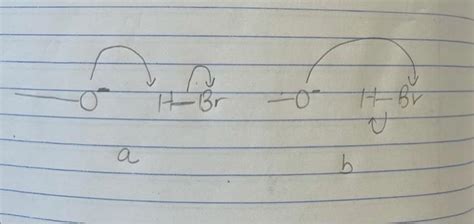 —O⁻ H—Br —O⁻ H—Br
a b